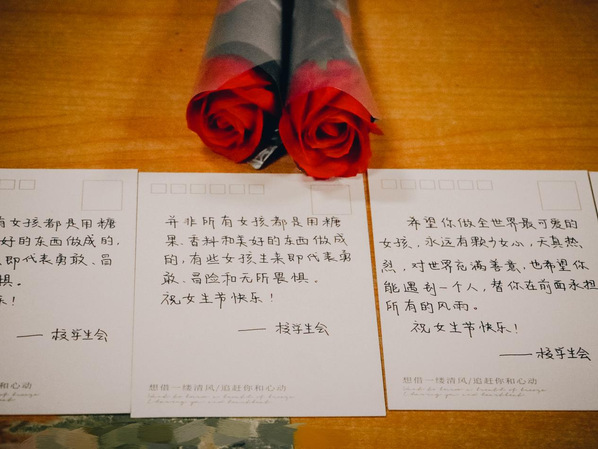 有女孩都是用糖
好的东西做成的,
即代表勇敢、冒
惧.
乐!
—— 校学生会
和心动
并非所有女孩都是用糖
果、香料和美好的东西做成
的,有些女孩生来即代表勇
敢、冒险和无所畏惧.
祝女生节快乐!
—— 校学生会
想借一缕清风/追赶你和心动
希望你做全世界最可爱的
女孩,永远有少女心,天真热
烈,对世界充满善意,也希望你
能遇到一个人,替你在前面承担
所有的风雨.
祝女生节快乐!
—— 校学生会
想借一缕清风/追赶你和心动